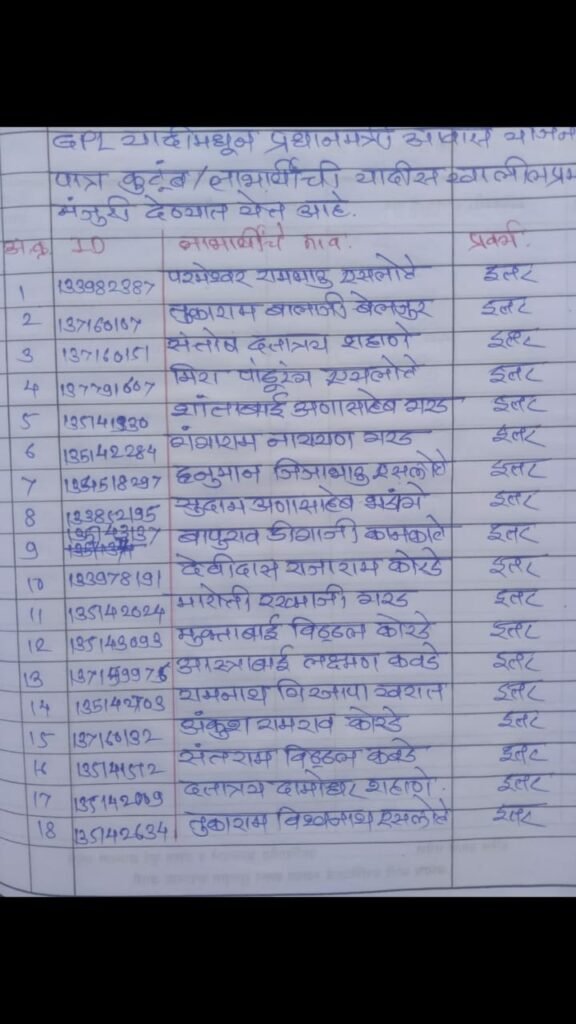 GPL यादीमधून प्रधानमंत्री आवास योजना
पात्र कुटूंब/लाभार्थीची यादीस खालीलप्रमा
मंजुरी देण्यात येत आहे.
अ.क्र. ID लाभार्थीचे नाव. प्रवर्ग.
1 133982387 परमेश्वर रामभाऊ एसलोटे इतर
2 137160107 तुकाराम बालाजी बेलजुर इतर
3 137160151 संतोष दत्तात्रय शहाणे इतर
4 137791607 मिरा पांडूरंग एसलोटे इतर
5 135141930 शांताबाई अणासाहेब गरड इतर
6 135142284 गंगाराम नारायण गरड इतर
7 134518297 हनुमान जिजाभाऊ एसलोटे इतर
8 133852195 सुदाम अणासाहेब इतर
9 135143137 बापुराव कानकाटे इतर
10 133978191 देवीदास राजाराम कोरडे इतर
11 135142024 मारोती रखमाजी गरड इतर
12 135143093 मुक्ताबाई विठ्ठल कोरडे इतर
13 137159976 आसराबाई लक्ष्मण कवडे इतर
14 135142703 रामनाथ गिरजापा खरात इतर
15 137160132 अंकुश रामराव कोरडे इतर
16 135141512 संतराम विठ्ठल कवडे इतर
17 135142009 दत्तात्रय दामोधर शहाणे. इतर
18 135142634 तुकाराम विश्वनाथ एसलोटे इतर